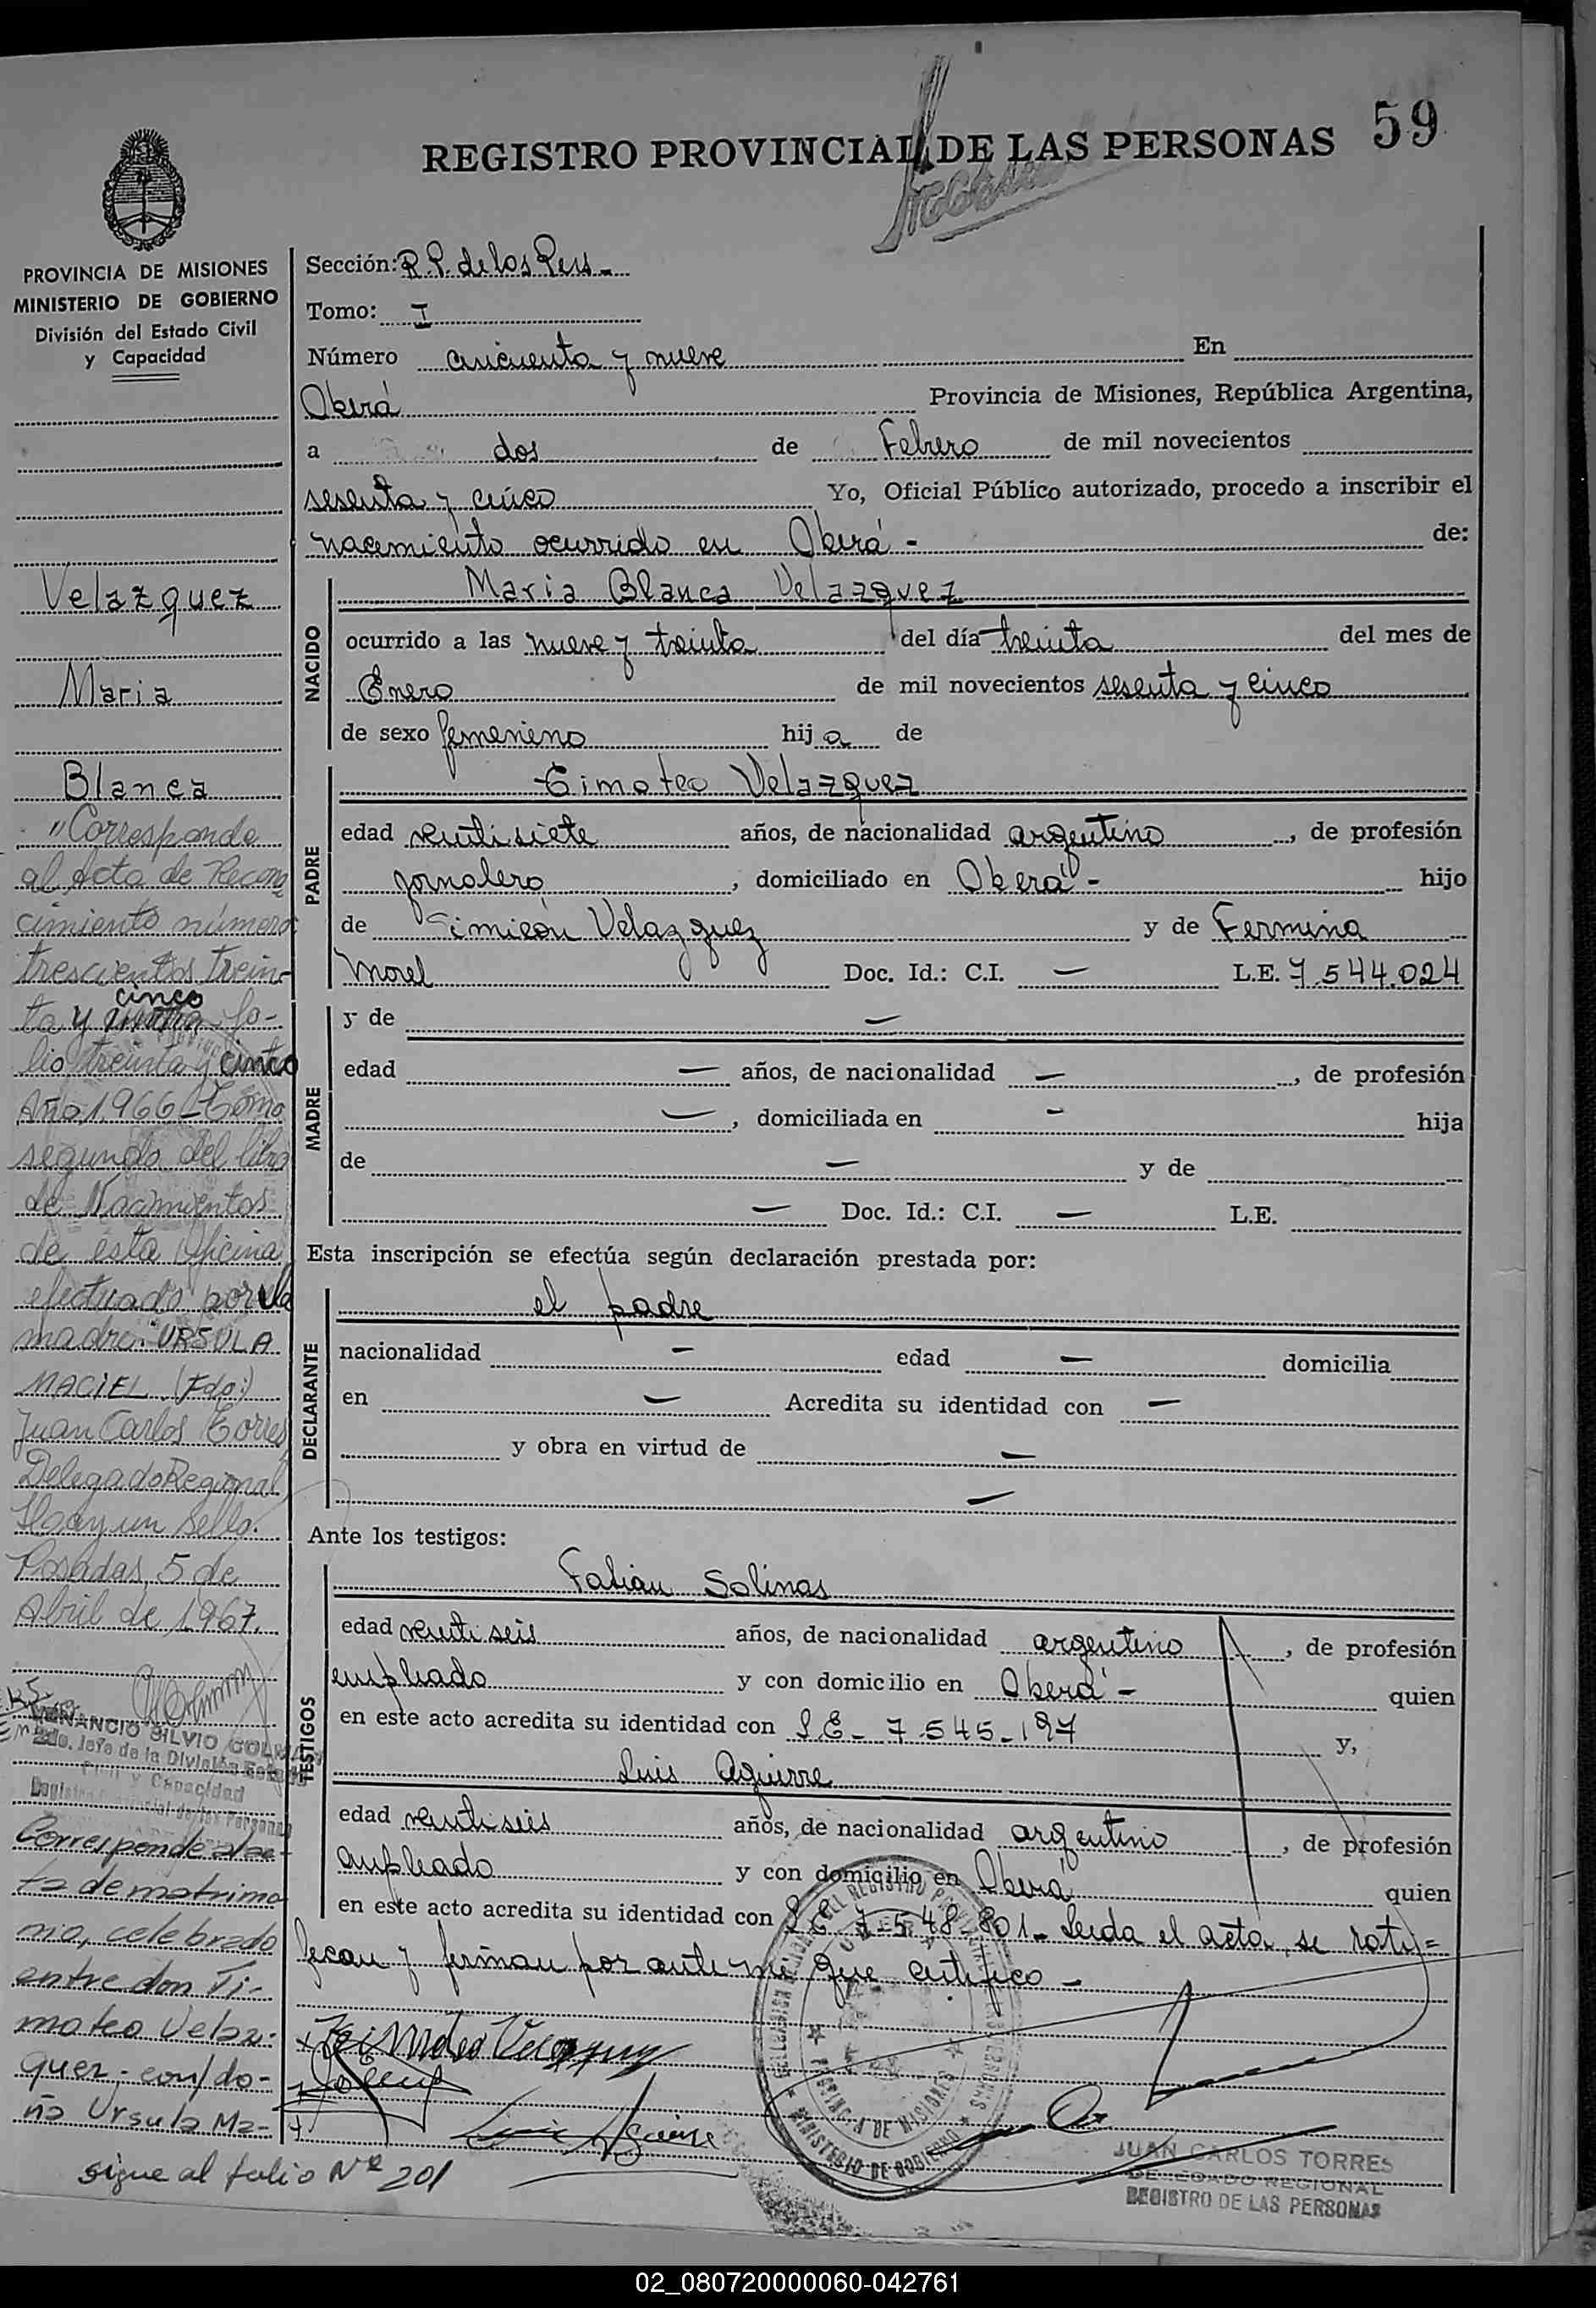 59
REGISTRO PROVINCIAL DE LAS PERSONAS
PROVINCIA DE MISIONES
MINISTERIO DE GOBIERNO
División del Estado Civil
y Capacidad
Velazquez
Maria
Blanca
"Corresponde
al Acta de Recono
cimiento número
trescientos trein-
cinco
ta y fo-
lio treinta y cinco
Año 1966 - Tomo
segundo del libro
de Nacimientos
de esta Oficina
efectuado por la
madre: URSULA
MACIEL (Fdo:)
Juan Carlos Torres
Delegado Regional
Hay un sello.
Posadas, 5 de
Abril de 1967.
VENANCIO SILVIO
2do. Jefe de la División Estado
Civil y Capacidad
Registro Provincial de las Personas
Corresponde al ac-
ta de matrimo
nio, celebrado
entre don Ti-
moteo Velaz-
quez - con/do-
ña Ursula Ma-
sigue al folio Nº 201
Sección: R.P. de las Pers -
Tomo: I
Número cincuenta y nueve En
Oberá Provincia de Misiones, República Argentina,
a dos de Febrero de mil novecientos
sesenta y cinco Yo, Oficial Público autorizado, procedo a inscribir el
nacemiento ocurrido en Oberá - de:
NACIDO
Maria Blanca Velazquez
ocurrido a las nueve y treinta del día treinta del mes de
Enero de mil novecientos sesenta y cinco
de sexo femenino hij a de
PADRE
Timoteo Velazquez
edad veintisiete años, de nacionalidad argentino, de profesión
jornalero, domiciliado en Oberá - hijo
de Simieón Velazquez y de Fermina
Morel Doc. Id.: C.I. — L.E. 7.544.024
MADRE
y de —
edad — años, de nacionalidad —, de profesión
—, domiciliada en - hija
de — y de
— Doc. Id.: C.I. — L.E.
Esta inscripción se efectúa según declaración prestada por:
DECLARANTE
el padre
nacionalidad - edad — domicilia
en — Acredita su identidad con —
y obra en virtud de —
—
Ante los testigos:
TESTIGOS
Fabian Solinas
edad veintiseis años, de nacionalidad argentino, de profesión
empleado y con domicilio en Oberá - quien
en este acto acredita su identidad con L.E - 7.545-197 y,
Luis Aguirre
edad veintiseis años, de nacionalidad argentino, de profesión
empleado y con domicilio en Oberá quien
en este acto acredita su identidad con L.E. 7-548-801 - Leida el acta, se rati=
fecan y firman por ante mi que certifico -
Timoteo Velazquez
Luis Aguirre
PROVINCIA DE MISIONES
MINISTERIO DE GOBIERNO
JUAN CARLOS TORRES
DELEGADO REGIONAL
REGISTRO DE LAS PERSONAS
02_080720000060-042761